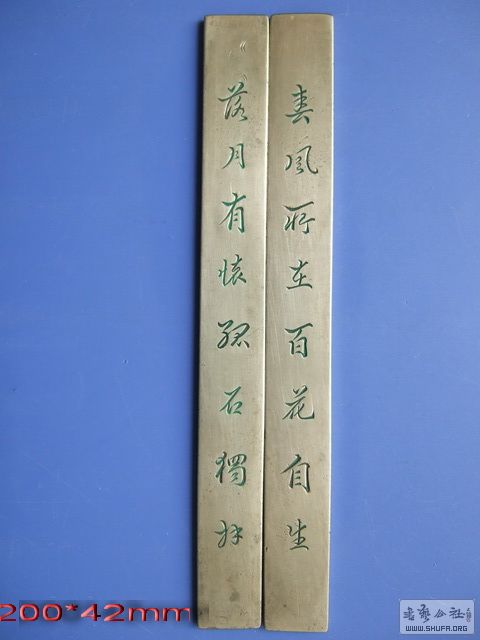 春風所在百花自生
落月有懷孤石獨
200*42mm
書藝公社
WWW.SHUFA.ORG